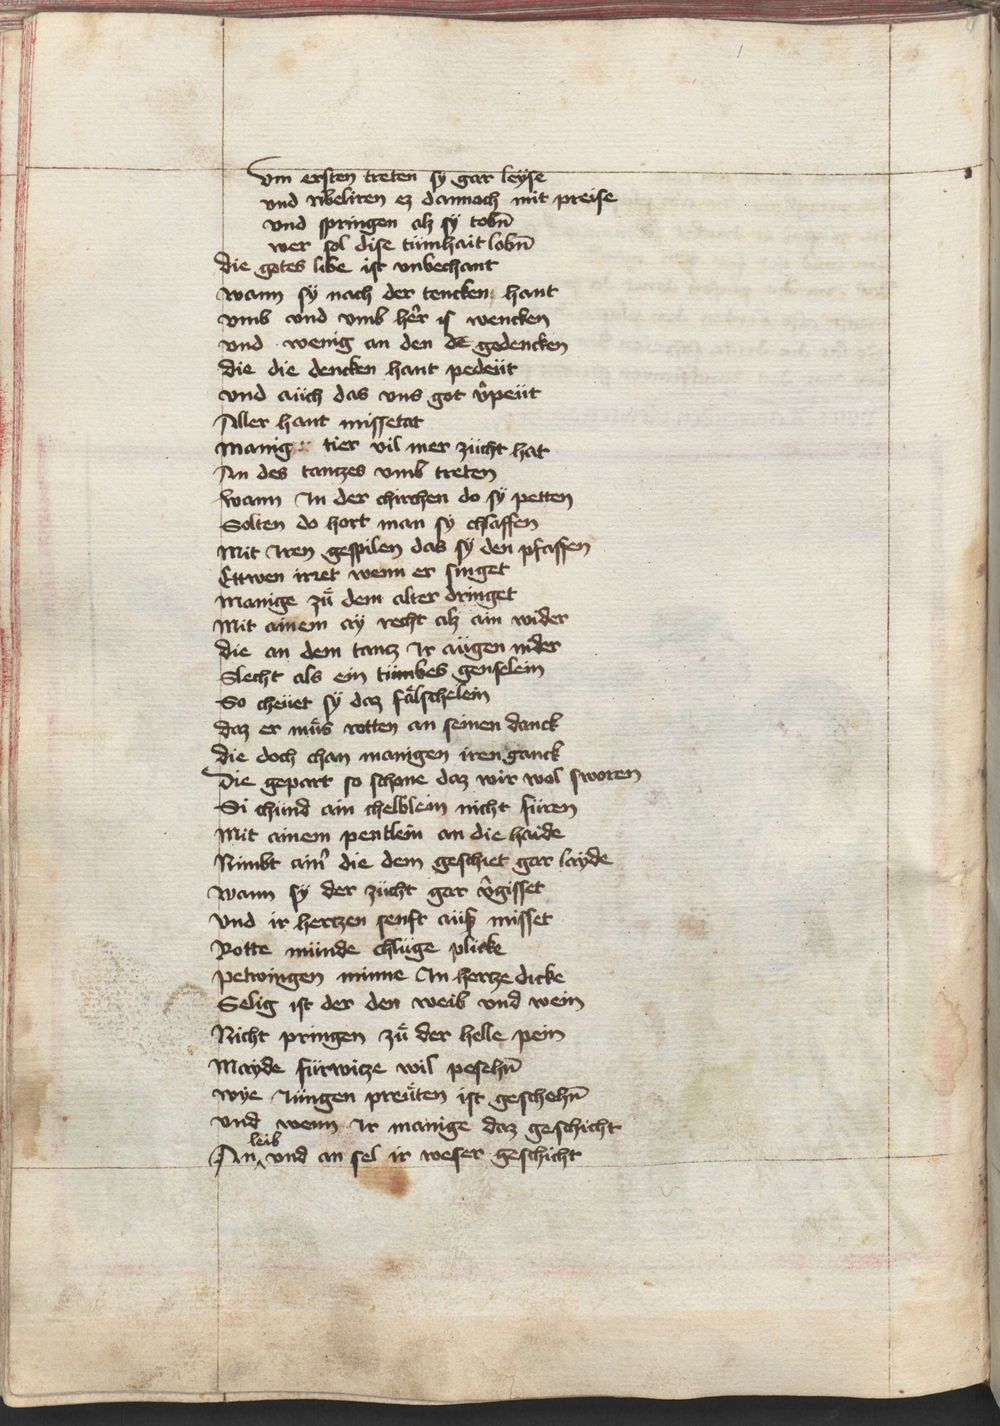 Vm ersten treten sy gar leyse
vnd ribeliren ez dannoch mit preise
Vnd springen alz sy tobn̄
wer sol dise tümhait lobn̄
die gotes libe ist vnbechant
wann sÿ nach der tencken hant
vmb vnd vmb her is wencken
vnd wenig an den gedencken
die die dencken hant pedeüt
vnd aüch das vns got v̂peüt
Aller hant missetat
Manig tier vil mer zücht hat
An des tantzes vmb treten
wann In der chirchen do sÿ petten
Solten do hort man sÿ chlaffen
Mit Iren gespilen das sÿ den pfaffen
Ettwen irret wenn er singet
Manige zů dem alter dringet
Mit ainem ay recht alz ain wider
die an dem tantz Ir aügen nider
Slecht als ein tümbes genselein
So cheüet sÿ daz fälschelein
daz er müs rotten an seinen danck
die doch chan manigen iren ganck
Die gepart so schone daz wir wol sworen
Si chünd ain chelblein nicht füren
Mit ainem pentlein an die haide
Nimbt ain̂ die dem geschiet gar layde
wann sÿ der zücht gar v̂gisset
vnd ir hertzen senft aüß misset
Rotte münde chlüge plicke
petwingen minne In hertze dicke
Selig ist der den weib vnd wein
Nicht pringen zů der helle pein
Mayde fürwitze wil pesehn̄
wÿe Iüngen preüten ist geschehn̄
vnd wenn Ir manige daz geschicht
An leib vnd an sel ir weser geschicht